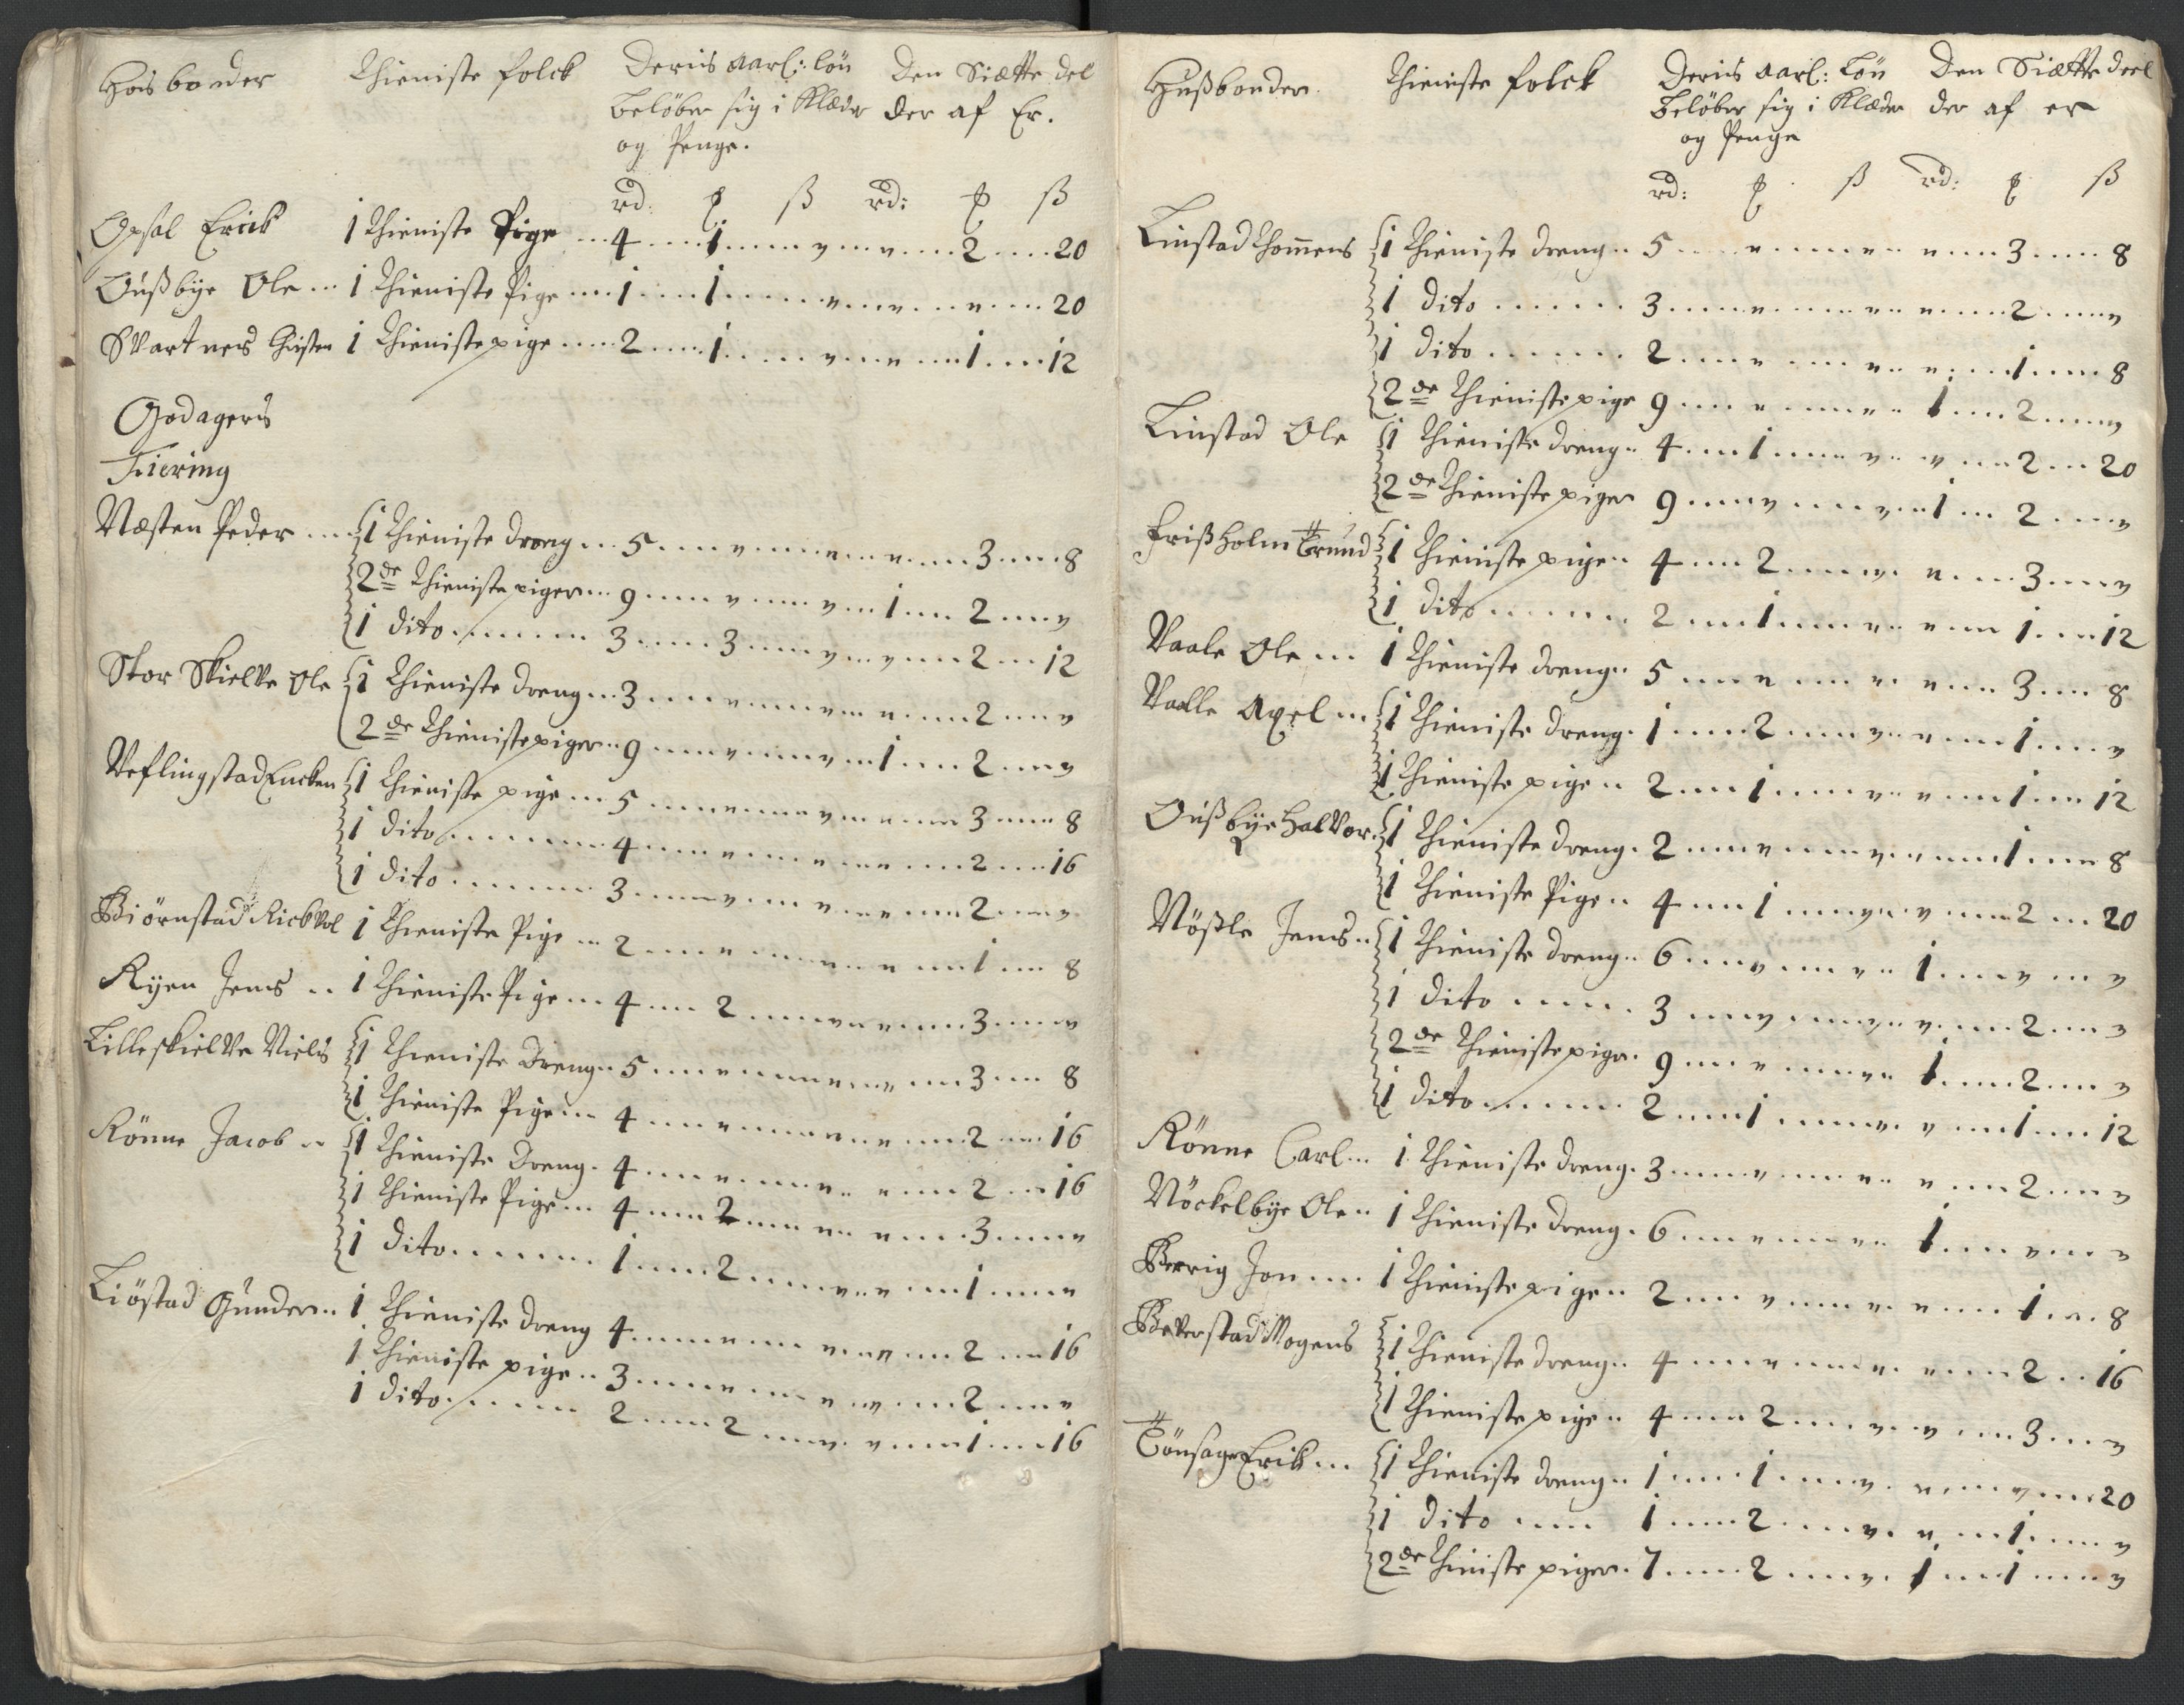 Hoisbonder Thieniste folck Deris aarl: løn Den Siætte del
beløber sig i Klæder der af Er.
og Penge.
rd: ß rd: ß
Opsal Erick 1 Thieniste Pige 4 1 " " 2 20
Oußbye Ole 1 Thieniste Pige 1 1 " " " 20
Svartners Christen 1 Thieniste pige 2 1 " " 1 12
Godagers
Fiering
Næsten Peder 1 Thieniste dreng 5 " " " 3 8
2de Thieniste piger 9 " " 1 2 "
1 dito 3 3 " " 2 12
Stor Skielve Ole 1 Thieniste dreng 3 " " " 2 "
2de Thieniste piger 9 " " 1 2 "
Veflingstad Lucken 1 Thieniste pige 5 " " " 3 8
1 dito 4 " " " 2 16
1 dito 3 " " " 2 "
Biørnstad Rickvol 1 Thieniste Pige 2 " " " 1 8
Ryen Jens 1 Thieniste Pige 4 2 " " 3 "
Lilleskielve Niels 1 Thieniste Dreng 5 " " " 3 8
1 Thieniste Pige 4 " " " 2 16
Rönne Jacob 1 Thieniste Dreng 4 " " " 2 16
1 Thieniste Pige 4 2 " " 3 "
1 dito 1 2 " " 1 "
Liöstad Gunder 1 Thieniste dreng 4 " " " 2 16
1 Thieniste pige 3 " " " 2 "
1 dito 2 2 " " 1 16
Hußbonder Thieniste folck Deris aarl: Løn Den Siætte deel
beløber sig i Klæder der af er
og Penge
rd: ß rd: ß
Linstad Thommes 1 Thieniste dreng 5 " " " 3 8
1 dito 3 " " " 2 "
1 dito 2 " " " 1 8
2de Thieniste pige 9 " " 1 2 "
Linstad Ole 1 Thieniste dreng 4 1 " " 2 20
2de Thieniste piger 9 " " 1 2 "
Frißholm Trund 1 Thieniste pige 4 2 " " 3 "
1 dito 2 1 " " 1 12
Vaale Ole 1 Thieniste dreng 5 " " " 3 8
Vaalle Axel 1 Thieniste dreng 1 2 " " 1 "
1 Thieniste pige 2 1 " " 1 12
Oußbye Halvor 1 Thieniste dreng 2 " " " 1 8
1 Thieniste Pige 4 1 " " 2 20
Nößle Jens 1 Thieniste dreng 6 " " 1 " "
1 dito 3 " " " 2 "
2de Thieniste piger 9 " " 1 2 "
1 dito 2 1 " " 1 12
Rönne Carl 1 Thieniste dreng 3 " " " 2 "
Nöckelbye Ole 1 Thieniste dreng 6 " " 1 " "
Berrig Jon 1 Thieniste pige 2 " " " 1 8
Beverstad Mogens 1 Thieniste dreng 4 " " " 2 16
1 Thieniste pige 4 2 " " 3 "
Tönsage Erik 1 Thieniste dreng 1 1 " " " 20
1 dito 1 2 " " 1 "
2de Thieniste piger 7 2 " 1 1 "